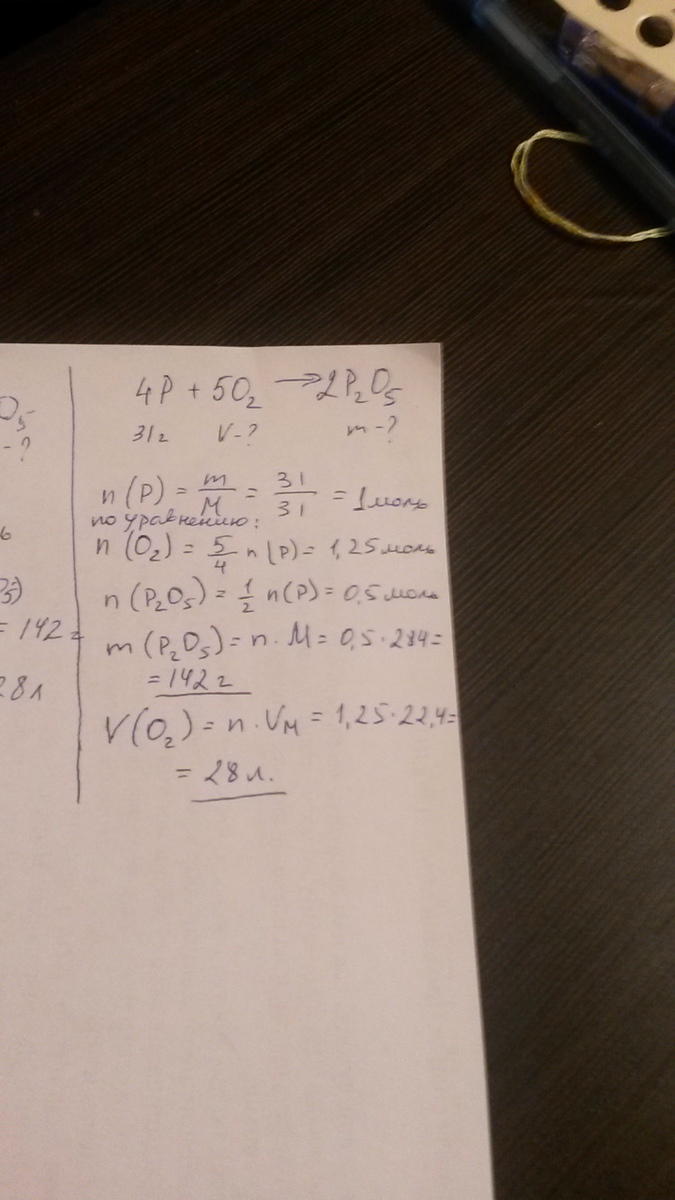 O₅
-?
ь
5)
= 142 г
28 л
4P + 5O₂ → 2P₂O₅
31г V-? m-?
n (P) = m/M = 31/31 = 1 моль
по уравнению:
n (O₂) = 5/4 n (P) = 1,25 моль
n (P₂O₅) = 1/2 n (P) = 0,5 моль
m (P₂O₅) = n · M = 0,5 · 284 =
= 142 г
V (O₂) = n · Vм = 1,25 · 22,4 =
= 28 л.